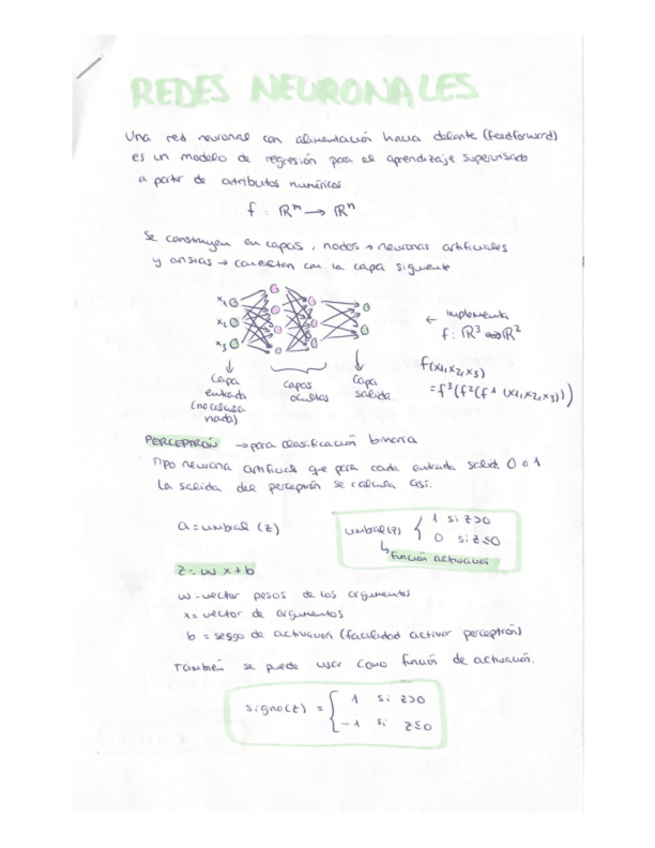 REDES NEURONALES
Una red neuronal con alimentación hacia delante (feedforward)
es un modelo de regresión para el aprendizaje supervisado
a partir de atributos numéricos.
f : ℝᵐ → ℝⁿ
Se construyen en capas, nodos → neuronas artificiales
y aristas → conectan con la capa siguiente.
x1
x2
x3
← implementa
f: ℝ³ → ℝ²
f(x1,x2,x3)
= f³(f²(f¹(x1,x2,x3)))
↓ capa entrada (no calcula nada)
capas ocultas
↓ capa salida.
PERCEPTRÓN → para clasificación binaria
Tipo neurona artificial que para cada entrada salida 0 o 1
La salida del perceptrón se calcula así:
a = umbral (z)
umbral(z) { 1 si z>0
0 si z≤0
↳ función activación
z = w x + b
w = vector pesos de los argumentos
x = vector de argumentos
b = sesgo de activación (facilidad activar perceptrón)
También se puede usar como función de activación.
signo(z) = { 1 si z>0
-1 si z≤0